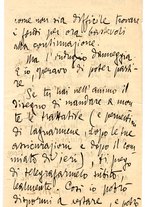 come non sia difficile trovare
i fondi per ora bastevoli
alla continuazione.
Ma l'indugio danneggia
e io speravo di poter parti-
re.
Se tu hai nell'animo il
disegno di mandare a mon-
te le trattative (e permetti
di lagnarmene, dopo le tue
assicurazioni e dopo il com-
miato di ieri), ti prego
di telegrafarmelo subito,
lealmente. Così io potrò
dispormi a restare e potrò